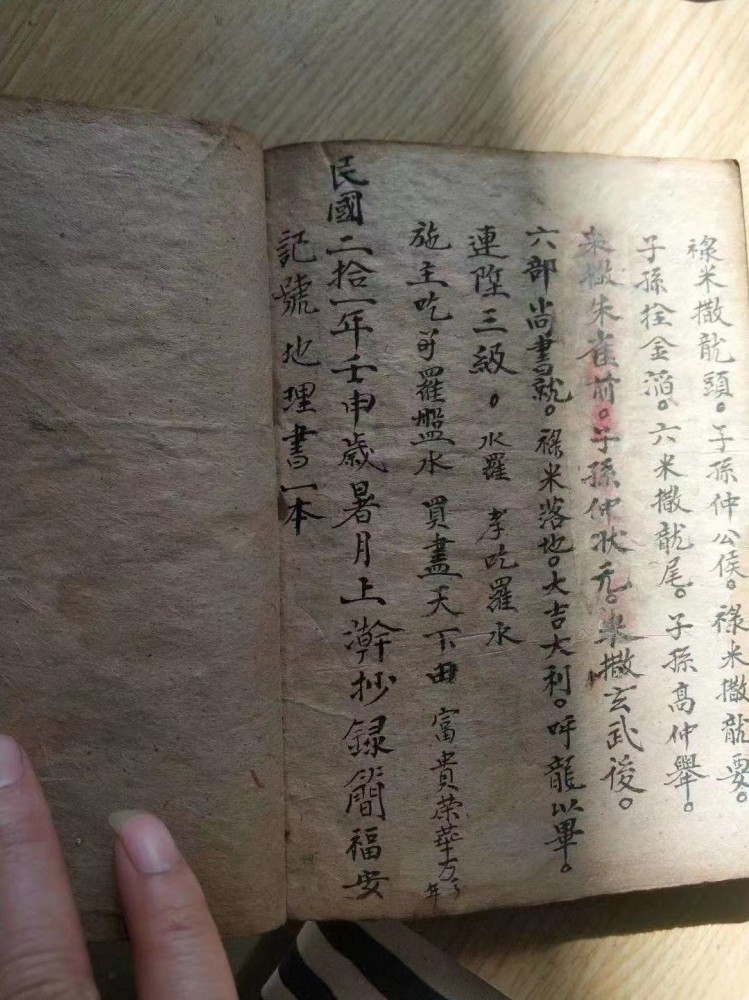 祿米撒龍頭。子孫仲公侯。祿米撒龍要。
子孫拴金滔。六米撒龍尾。子孫高仲舉。
米撒朱雀前。子孫仲状元。米撒玄武後。
六部尚書就。祿米落地。大吉大利。呼龍以畢。
連陞三級。水羅 孝吃羅水
施主吃可羅盤水 買盡天下田 富貴荣華万々年
民國二拾一年壬申歲暑月上澣抄録簡福安
記號地理書一本